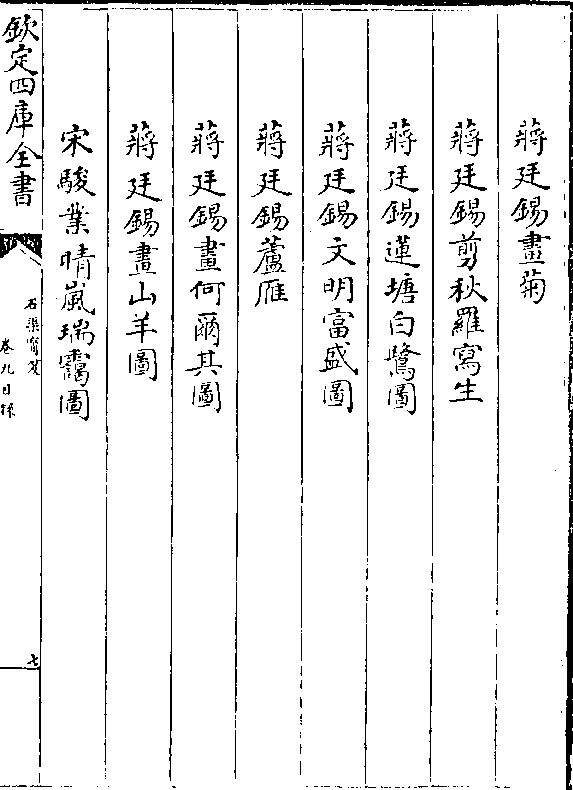 蔣廷錫畫菊
蔣廷錫剪秋羅寫生
蔣廷錫蓮塘白鷺圖
蔣廷錫文明富盛圖
蔣廷錫蘆雁
蔣廷錫畫何爾其圖
蔣廷錫畫山羊圖
宋駿業晴嵐瑞靄圖
欽定四庫全書
石渠寶笈
卷九目録
七